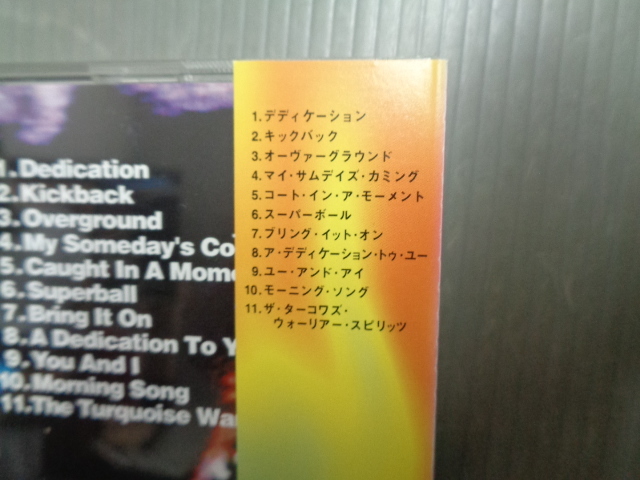 1.Dedication
2.Kickback
3.Overground
4.My Someday's Co
5.Caught In A Mome
6.Superball
7.Bring It On
8.A Dedication To Y
9.You And I
10.Morning Song
11.The Turquoise Wa
1.デディケーション
2.キックバック
3.オーヴァーグラウンド
4.マイ・サムデイズ・カミング
5.コート・イン・ア・モーメント
6.スーパーボール
7.ブリング・イット・オン
8.ア・デディケーション・トゥ・ユー
9.ユー・アンド・アイ
10.モーニング・ソング
11.ザ・ターコワズ・
ウォーリアー・スピリッツ